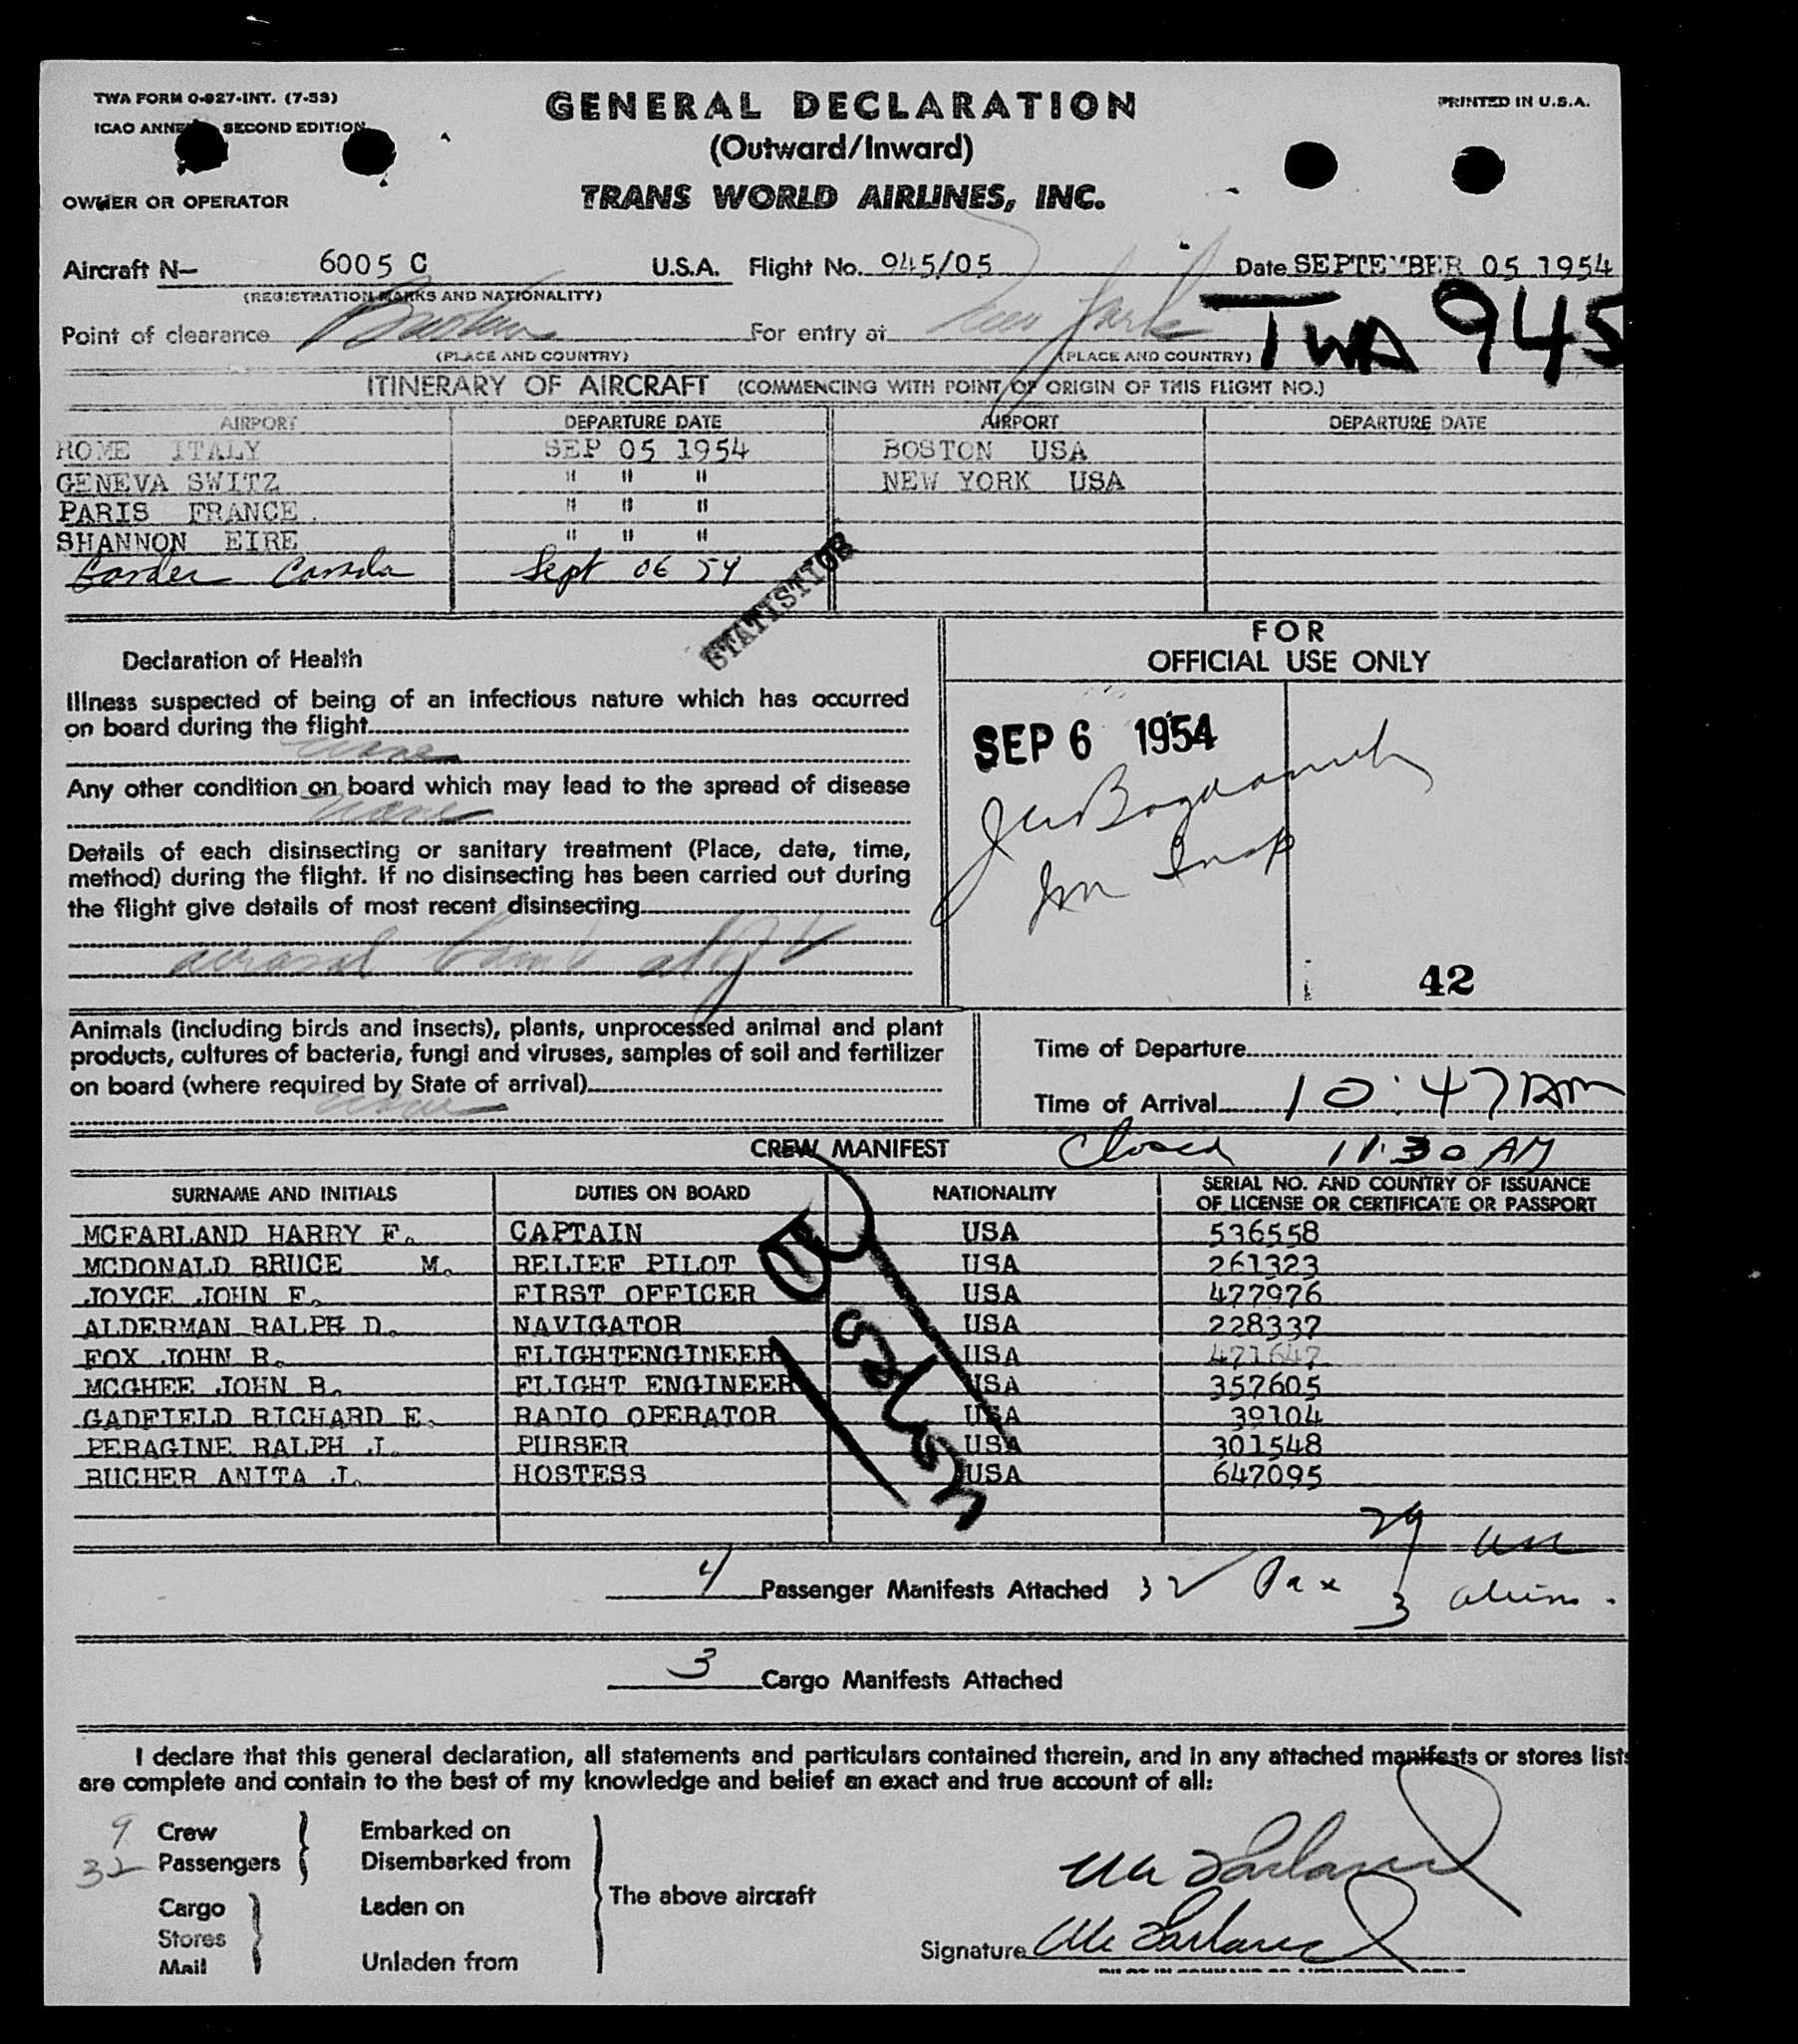 TWA FORM O-927-INT. (7-53)
ICAO ANNEX SECOND EDITION
GENERAL DECLARATION
PRINTED IN U.S.A.
(Outward/Inward)
OWNER OR OPERATOR
TRANS WORLD AIRLINES, INC.
Aircraft N- 6005 C U.S.A. Flight No. 945/05 Date SEPTEMBER 05 1954
(REGISTRATION MARKS AND NATIONALITY)
TWA 945
Point of clearance Boston For entry at New York
(PLACE AND COUNTRY) (PLACE AND COUNTRY)
ITINERARY OF AIRCRAFT (COMMENCING WITH POINT OF ORIGIN OF THIS FLIGHT NO.)
AIRPORT DEPARTURE DATE AIRPORT DEPARTURE DATE
ROME ITALY SEP 05 1954 BOSTON USA
GENEVA SWITZ " " " NEW YORK USA
PARIS FRANCE. " " "
SHANNON EIRE " " "
Gander Canada Sept 06 54
STATISTICS
FOR
OFFICIAL USE ONLY
Declaration of Health
Illness suspected of being of an infectious nature which has occurred
on board during the flight
none
Any other condition on board which may lead to the spread of disease
none
Details of each disinsecting or sanitary treatment (Place, date, time,
method) during the flight. If no disinsecting has been carried out during
the flight give details of most recent disinsecting
aerosol bomb
SEP 6 1954
Bogdanich
Im Insp
42
Animals (including birds and insects), plants, unprocessed animal and plant
products, cultures of bacteria, fungi and viruses, samples of soil and fertilizer
on board (where required by State of arrival)
none
Time of Departure
Time of Arrival 10:47 AM
CREW MANIFEST Closed 11:30 AM
SURNAME AND INITIALS DUTIES ON BOARD NATIONALITY SERIAL NO. AND COUNTRY OF ISSUANCE
OF LICENSE OR CERTIFICATE OR PASSPORT
MCFARLAND HARRY F. CAPTAIN USA 536558
MCDONALD BRUCE M. RELIEF PILOT USA 261323
JOYCE JOHN F. FIRST OFFICER USA 477976
ALDERMAN RALPH D. NAVIGATOR USA 228337
FOX JOHN R. FLIGHTENGINEER USA 471647
MCGHEE JOHN B. FLIGHT ENGINEER USA 357605
GADFIELD RICHARD E. RADIO OPERATOR USA 39104
PERAGINE RALPH J. PURSER USA 301548
BUCHER ANITA J. HOSTESS USA 647095
29 usc
4 Passenger Manifests Attached 32 Pax 3 aliens.
3 Cargo Manifests Attached
I declare that this general declaration, all statements and particulars contained therein, and in any attached manifests or stores lists
are complete and contain to the best of my knowledge and belief an exact and true account of all:
9 Crew Embarked on
32 Passengers Disembarked from
The above aircraft
Cargo Laden on
Stores
Mail Unladen from
McFarland
Signature McFarland